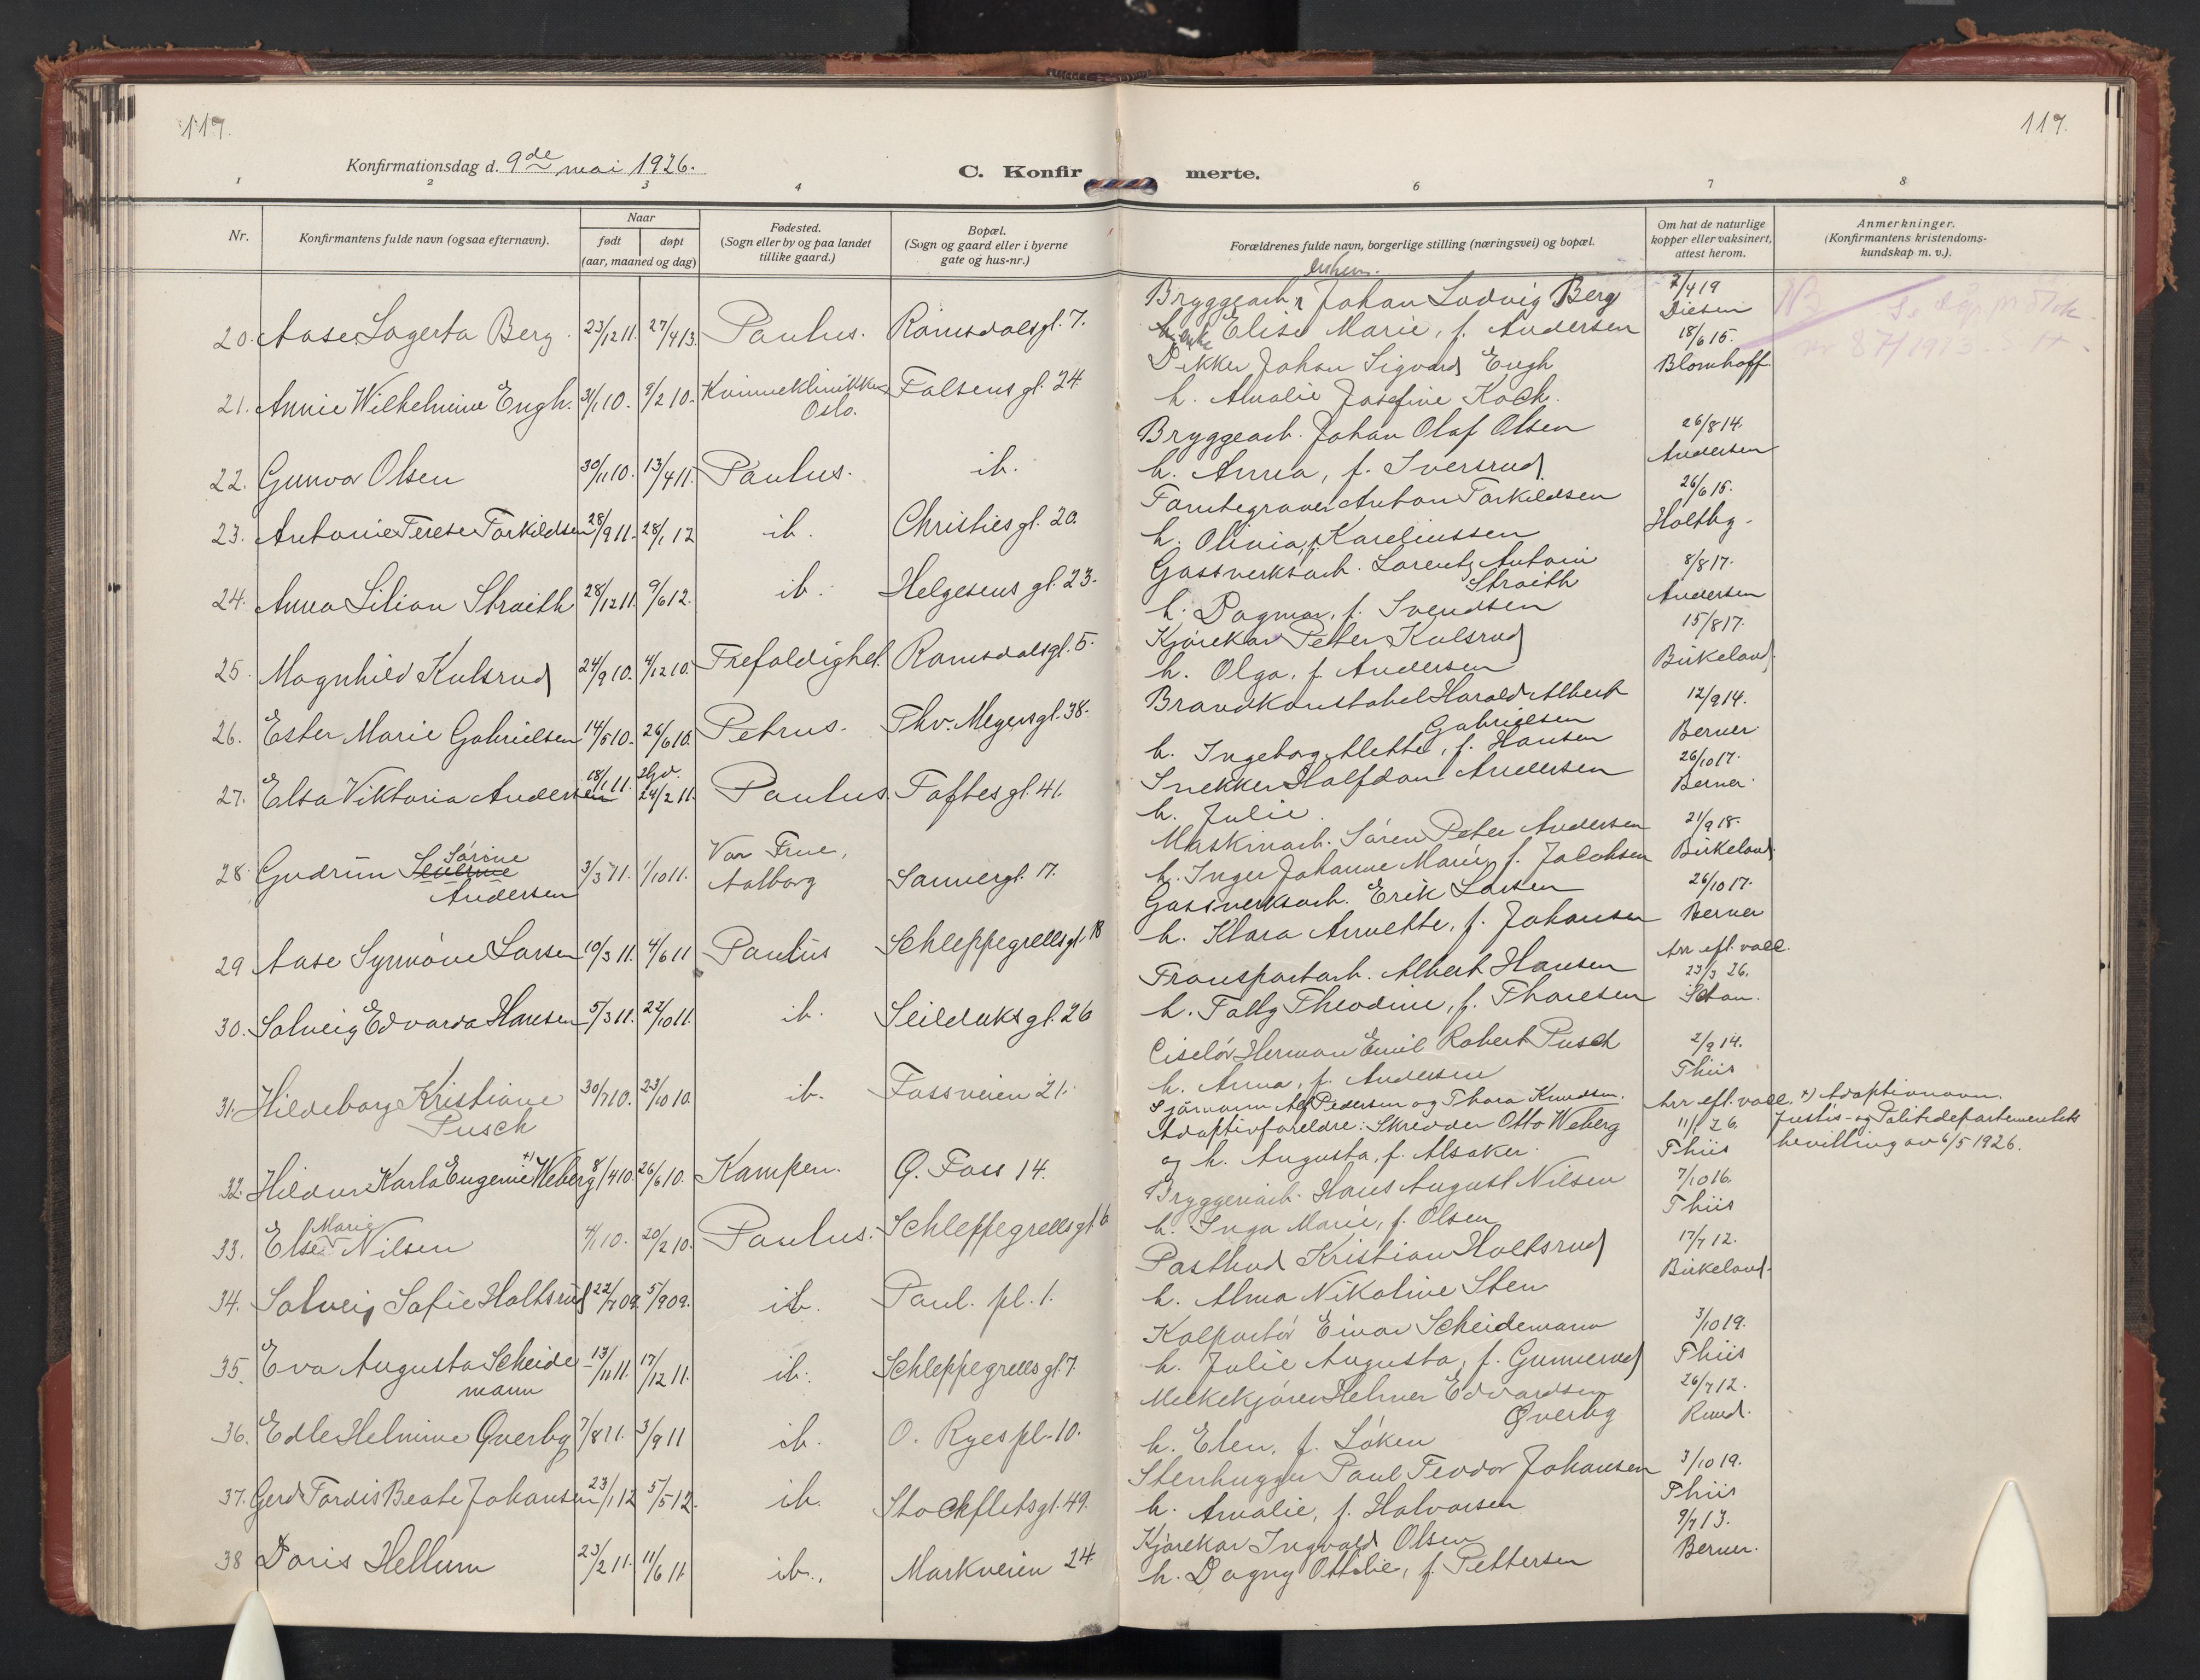 117.
117.
Konfirmationsdag d. 9de mai 1926.
C. Konfir merte.
1 2 3 4 6 7 8
Nr.
Konfirmantens fulde navn (ogsaa efternavn).
Naar
født
døpt
(aar, maaned og dag)
Fødested.
(Sogn eller by og paa landet
tillike gaard.)
Bopæl.
(Sogn og gaard eller i byerne
gate og hus-nr.)
Forældrenes fulde navn, borgerlige stilling (næringsvei) og bopæl.
Om hat de naturlige
kopper eller vaksinert,
attest herom.
Anmerkninger.
(Konfirmantens kristendoms-
kundskap m. v.).
20. Aase Lagerta Berg 23/12 11. 27/4 13. Paulus. Romsdalsgt. 7.
Bryggearb. Johan Ludvig Berg
Elise Marie, f. Andersen
2/4 19
Diesen
21. Annie Wilhelmine Engh. 31/1 10. 9/2 10. Kvinneklinikken Oslo. Falsens gt. 24
Johan Sigvard Engh
h. Amalie Josefine Koch.
18/6 15.
Blomhoff.
22. Gunvor Olsen 30/11 10. 13/4 11. Paulus. ib.
Bryggearb. Johan Olaf Olsen
h. Anna, f. Iversrud
26/8 14.
Andersen
23. Antonie Terese Torkildsen 28/9 11. 28/1 12 ib. Christies gt. 20.
Tomtegraver Anton Torkildsen
h. Olivia, f. Kareliussen
26/6 15.
Holtby.
24. Anna Lilian Straith 28/12 11. 9/6 12. ib. Helgesens gt. 23.
Gassverksarb. Lorentz Antoin
Straith
h. Dagmar, f. Svendsen
8/8 17.
Andersen
25. Magnhild Kulsrud 24/9 10. 4/12 10. Trefoldighet. Romsdalsgt. 5.
Kjørekar Petter Kulsrud
h. Olga, f. Andersen
15/8 17.
Birkeland.
26. Ester Marie Gabrielsen 14/5 10. 26/6 10. Petrus. Thv. Meyersgt. 38.
Brandkonstabel Harald Albert
Gabrielsen
h. Ingeborg Alette, f. Hansen
12/9 14.
Berner
27. Elsa Viktoria Andersen 18/1 11. 24/2 11. Paulus. Toftes gt. 41.
Snekker Halfdan Andersen
h. Julie.
26/10 17.
Berner.
28. Gudrun Sørine
Andersen 3/3 11. 1/10 11. Vor Frue,
Aalborg Sannergt. 17.
Maskinarb. Søren Peter Andersen
h. Inger Johanne Marie, f. Jacobsen
21/9 18.
Birkeland
29 Aase Synnøve Larsen 10/3 11. 4/6 11 Paulus Schleppegrellsgt. 18
Gassverksarb. Erik Larsen
h. Klara Annette, f. Johansen
26/10 17.
Berner
30. Solveig Edvarda Hansen 5/3 11. 22/10 11. ib. Seilduksgt. 26
Transportarb. Albert Hansen
h. Tolly Theodine, f. Thoresen
Arr eft. vacc.
23/3 26.
31. Hildeborg Kristiane
Pusch 30/7 10. 23/10 10. ib. Fossveien 21.
Ciselør Herman Emil Robert Pusch
h. Anna, f. Andersen
2/9 14.
Thiis
32. Hildur Karla Eugenie +) Weberg 8/4 10. 26/6 10. Kampen. Ø. Foss 14.
Sjømann Alf Pedersen og Thora Knudsen.
Adoptivforeldre: Skredder Otto Weberg
og h. Augusta, f. Alsaker.
Arr eft. vacc.
Thiis
+) Adoptivnavn.
Justis- og Politidepartementets
bevilling av 6/5 1926.
33. Else Marie Nilsen 4/1 10. 20/2 10. Paulus. Schleppegrellsgt. 6
Bryggeriarb. Hans August Nilsen
h. Inga Marie, f. Olsen
7/10 16.
Thiis
34. Solveig Sofie Holtsrud 22/7 09. 5/9 09. ib. Paul. pl. 1.
Postbud Kristian Holtsrud
h. Alma Nikoline Sten
17/7 12.
Birkeland.
35. Eva Augusta Scheide
mann 13/11 11. 17/12 11. ib. Schleppegrellsgt. 7.
Kolportør Einar Scheidemann
h. Julie Augusta, f. Gunnerud
3/10 19.
Thiis
36. Edle Helmine Øverby 7/8 11. 3/9 11 ib. O. Ryes pl. 10.
Melkekjører Helmer Edvardsen
Øverby
h. Elen, f. Løken
26/7 12.
Ruud.
37. Gerd Tordis Beate Johansen 23/1 12 5/5 12. ib. Stockfletsgt. 49.
Stenhugger Paul Teodor Johansen
h. Amalie, f. Halvorsen
3/10 19.
Thiis
38 Doris Hellum 23/2 11. 11/6 11 ib. Markveien 24
Kjørekar Ingvald Olsen
h. Dagny Ottilie, f. Pettersen
9/7 13.
Berner.